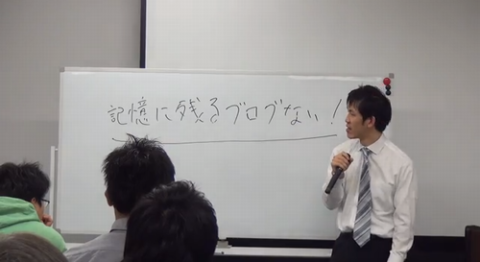 記憶に残るブログない!